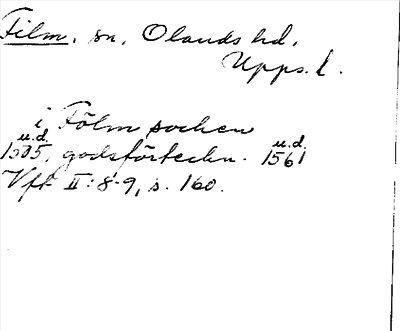 Film, sn, Olands hd,
Upps. l.
i Fölm sochen
u.d. u.d.
1505, godsförteckn. 1561
Vft II: 8-9, s. 160.